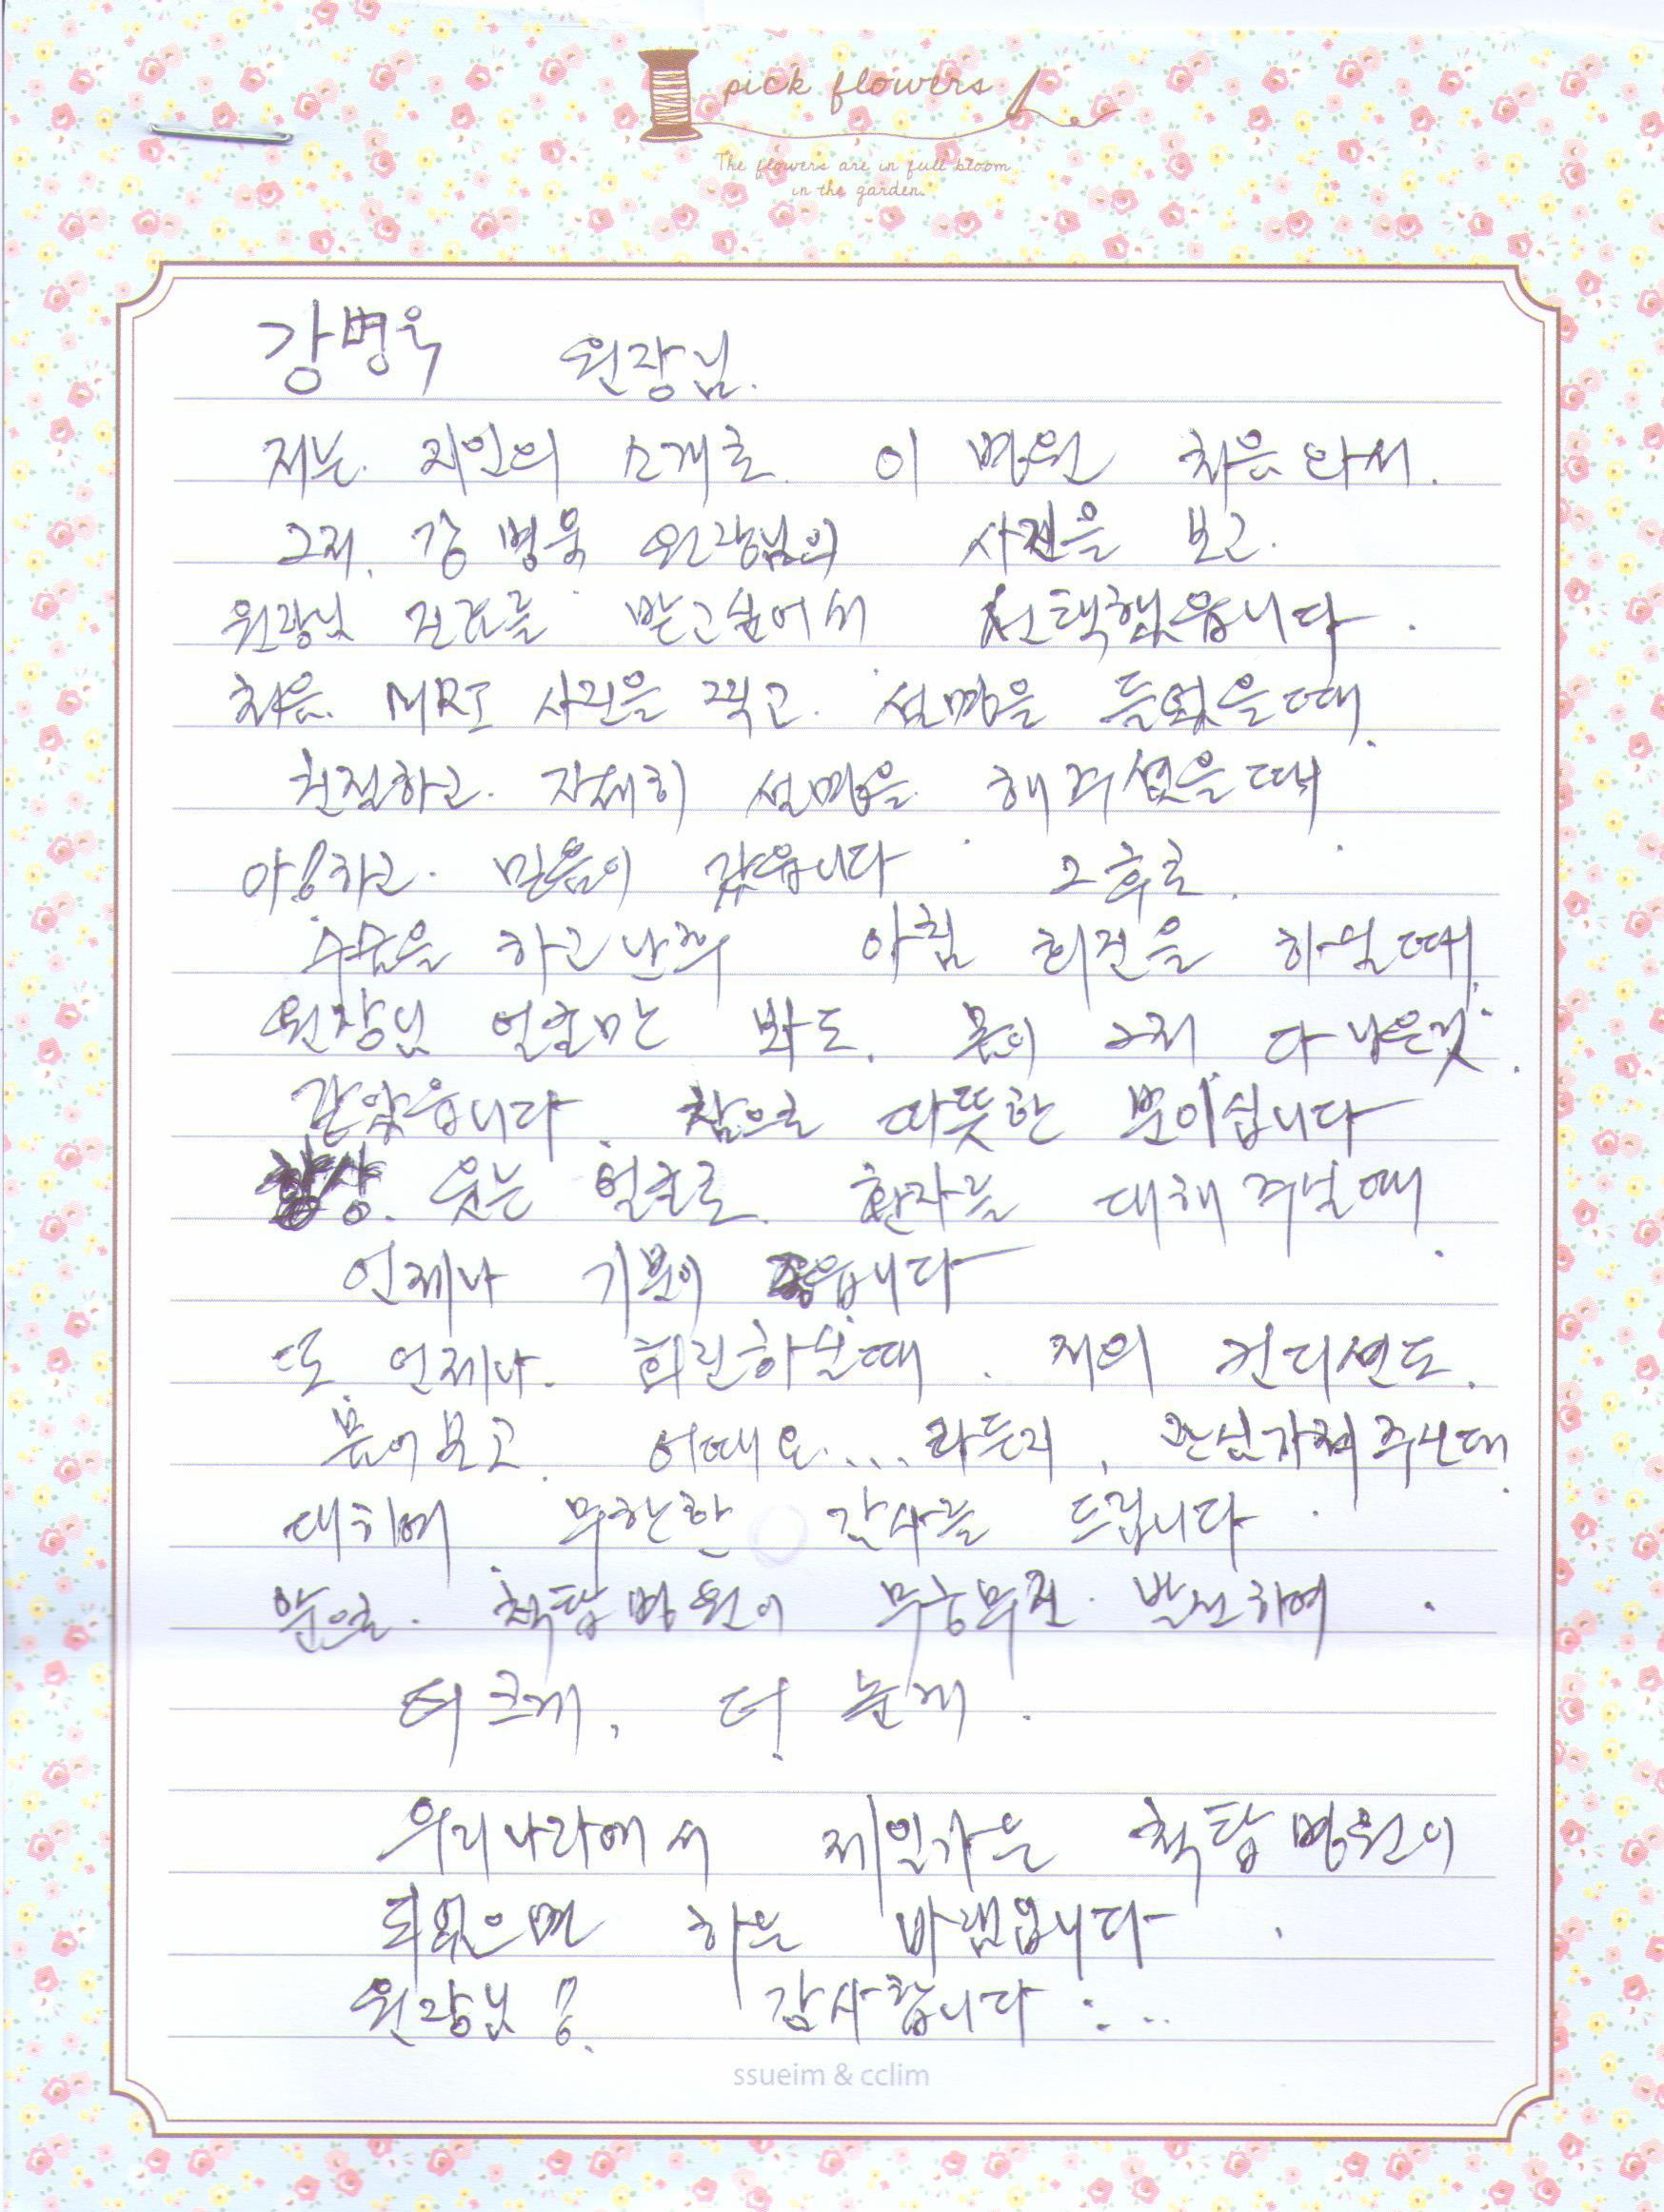 pick flowers
The flowers are in full bloom
in the garden.
강병욱 원장님.
저는. 지인의 소개로. 이 병원 처음 와서.
그저. 강병욱 원장님의 사진을 보고.
원장님 진료를 받고싶어서 선택했읍니다.
처음. MRI 사진을 찍고. 설명을 들었을때.
친절하고. 자세히 설명을. 해 주셨을때.
아!하고. 믿음이 갔읍니다. 그 후로.
수술을 하고난후 아침 회진을 하실때.
원장님 얼굴만 봐도. 몸이 그저 다 나은것.
같았읍니다. 참으로 따뜻한 분이십니다
항상. 웃는 얼굴로. 환자를 대해 주실때.
언제나 기분이 좋읍니다
또. 언제나. 회진하실때. 저의 컨디션도.
물어보고. 어때요... 라든지, 관심가져주신데.
대하여. 무한한 감사를 드립니다.
앞으로. 척탑병원이 무궁무진. 발전하여.
더 크게, 더 높게.
우리나라에서 제일가는 척탑병원이
되었으면 하는 바램입니다.
원장님! 감사합니다:..
ssueim & cclim